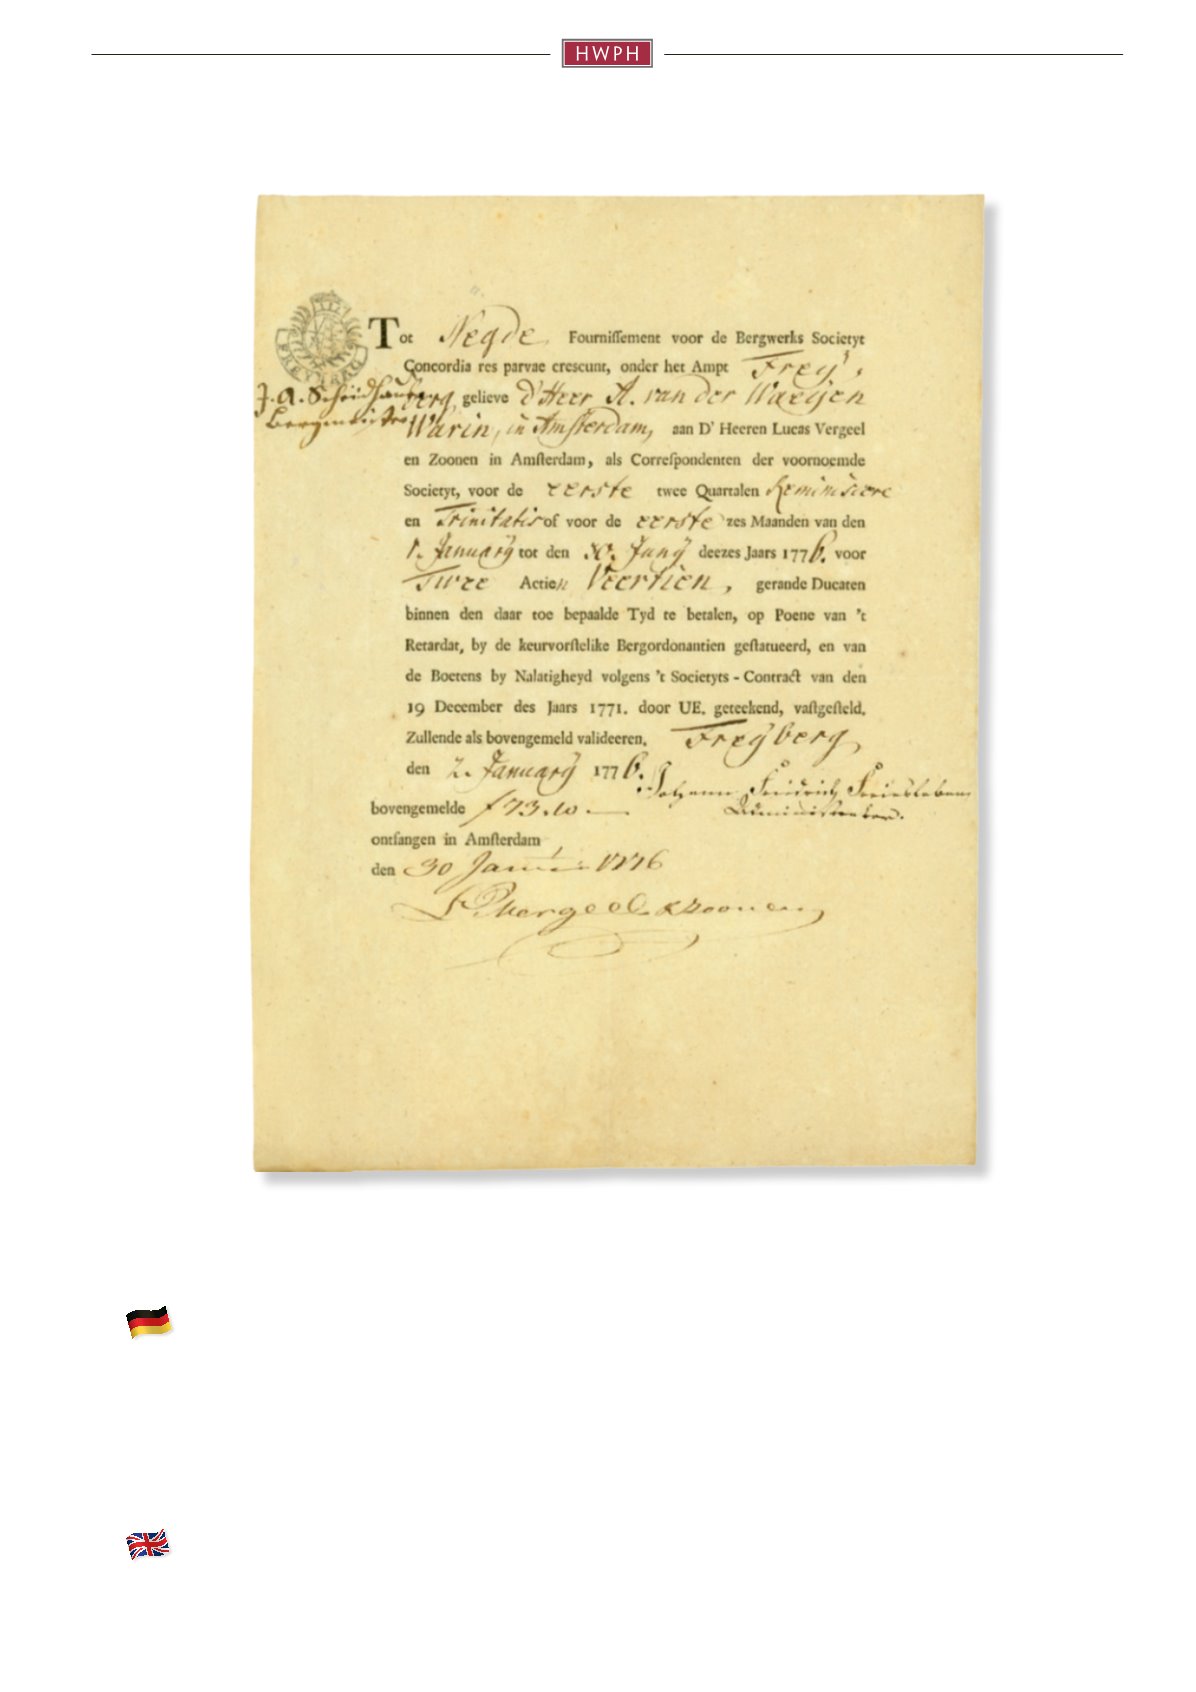 HWPH
Tot Negde Fournissement voor de Bergwerks Societyt
Concordia res parvae crescunt, onder het Ampt Frey-
FREYBERG
J. A. Scheidhauer
Bergmeister
berg, gelieve d'Heer A. van der Waeyen
Warin, in Amsterdam, aan D' Heeren Lucas Vergeel
en Zoonen in Amsterdam, als Correspondenten der voornoemde
Societyt, voor de eerste twee Quartalen Reminiscere
en Trinitatis of voor de eerste zes Maanden van den
1. January tot den 30. Juny deezes Jaars 1776. voor
Twee Actien Veertien, gerande Ducaten
binnen den daar toe bepaalde Tyd te betalen, op Poene van 't
Retardat, by de keurvorstelike Bergordonantien gestatueerd, en van
de Boetens by Nalatigheyd volgens 't Societyts-Contract van den
19 December des Jaars 1771. door UE. geteekend, vastgesteld.
Zullende als bovengemeld valideeren. Freyberg,
den 2. January 1776.
Johann Friedrich Freiesleben
Administrator.
bovengemelde f 73.10.—
ontfangen in Amsterdam
den 30 Janu: 1776
Vergeel & Zoonen